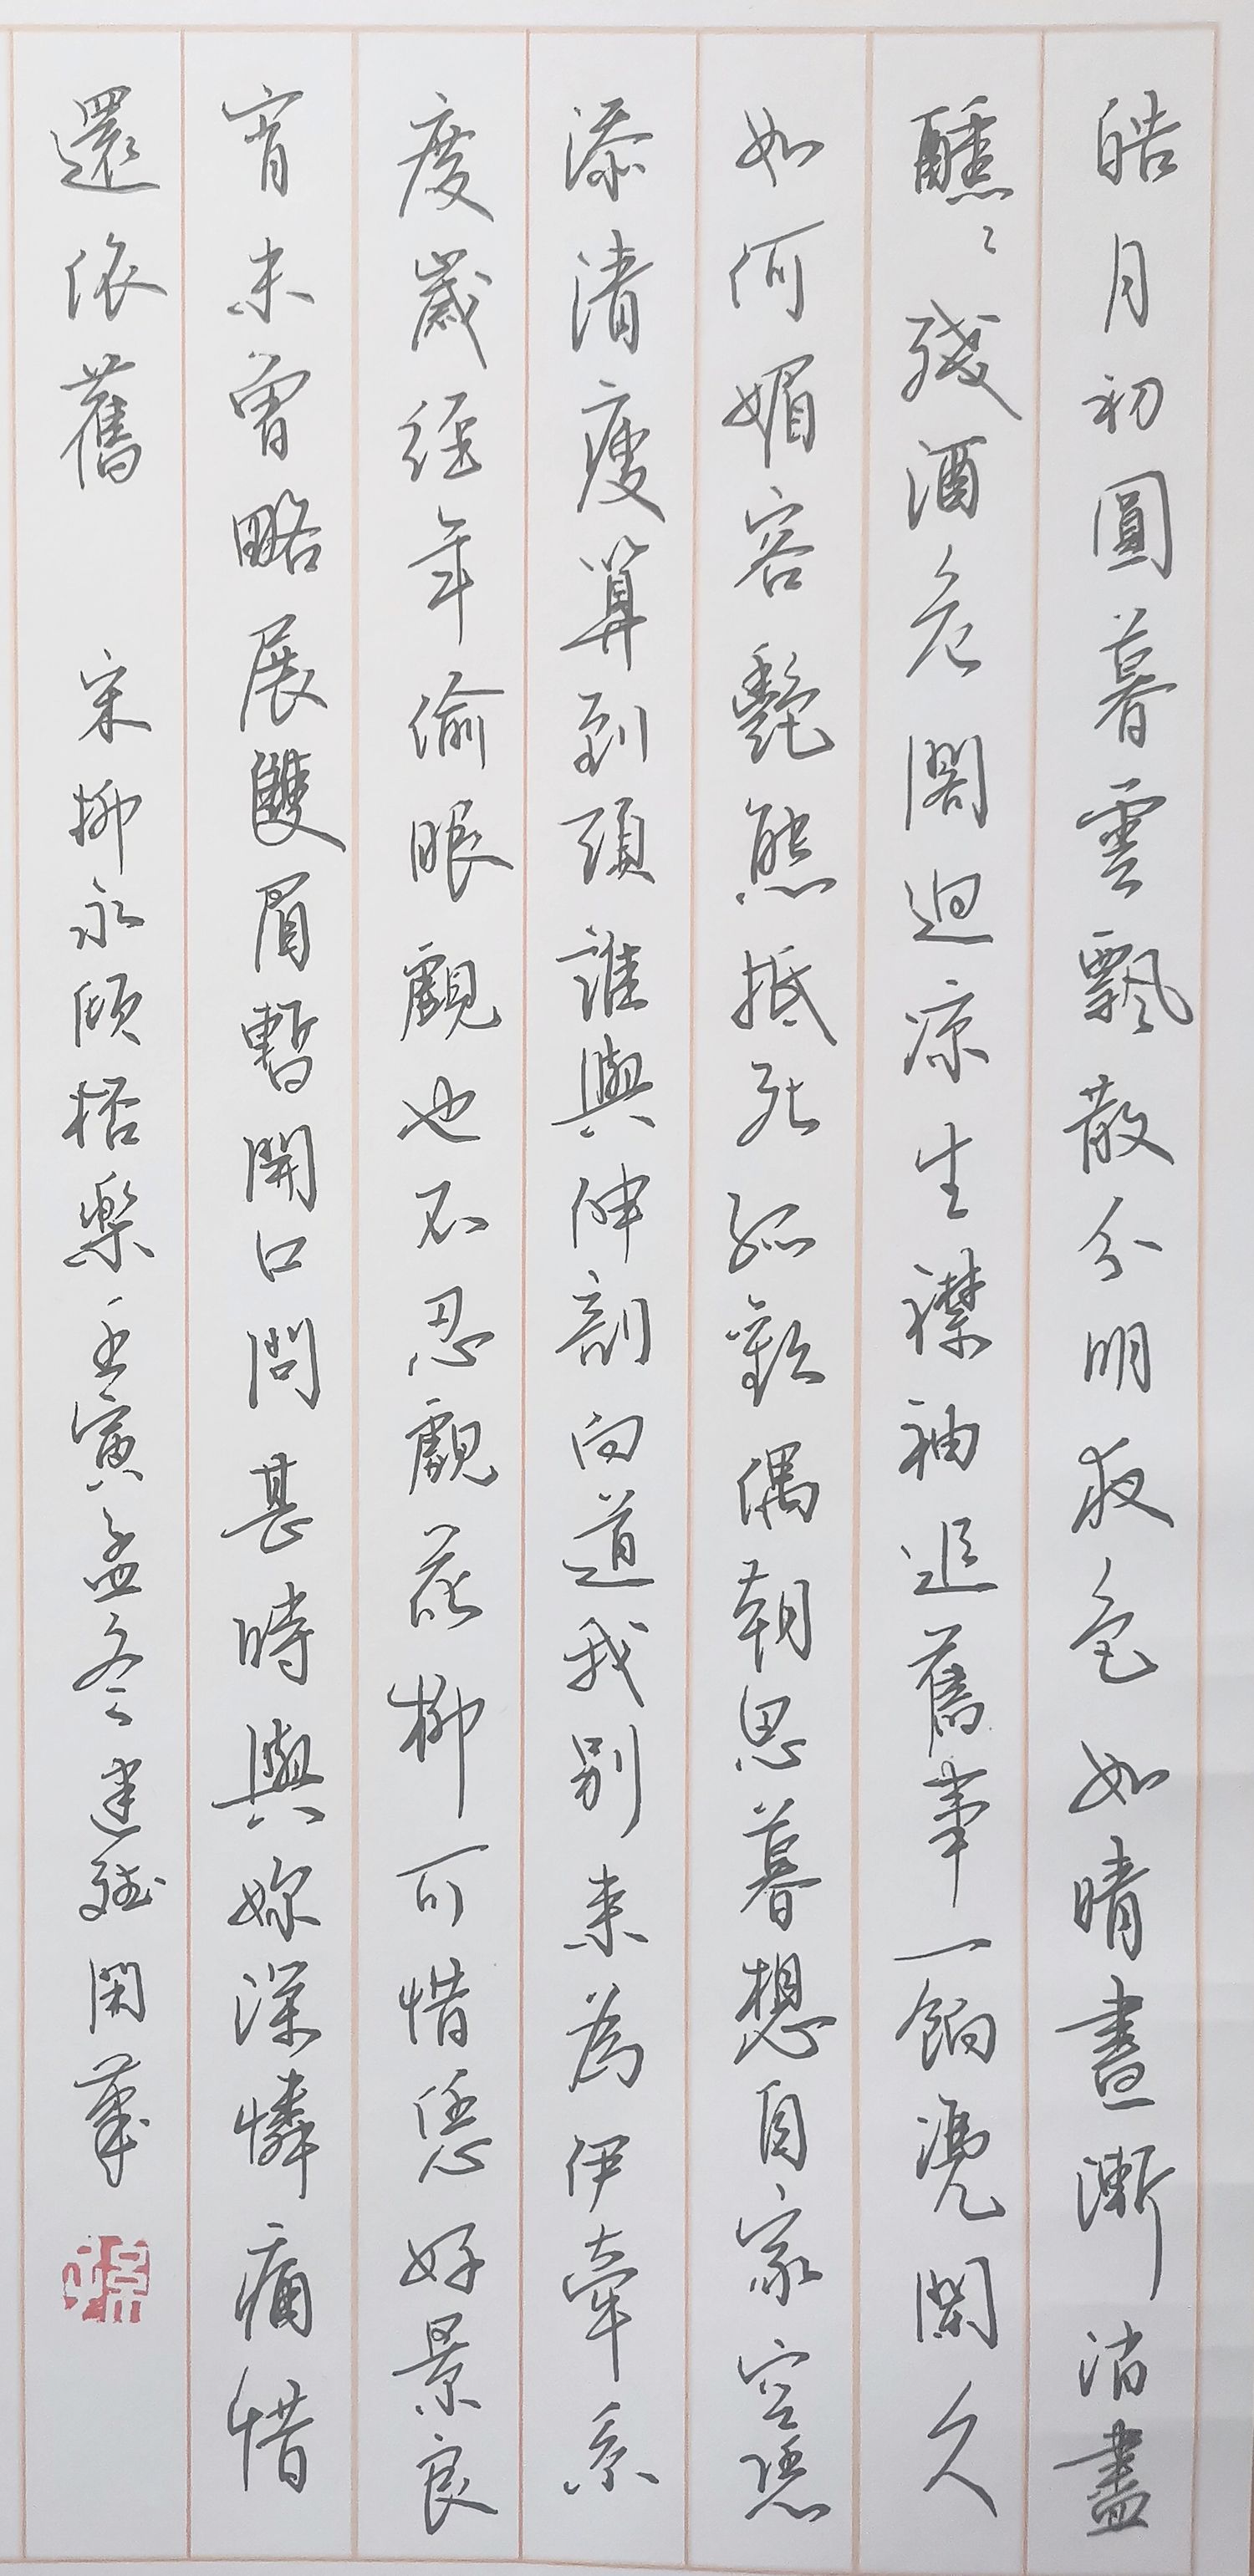 皓月初圓暮雲飄散分明夜色如晴晝漸消盡
醺〻殘酒危閣迥涼生襟袖追舊事一餉凭闌久
如何媚容艷態抵死孤歡偶朝思暮想自家空恁
添清瘦算到頭誰與伸剖向道我別來為伊牽系
度歲經年偷眼覷也不忍覷花柳可惜恁好景良
宵未曾略展雙眉暫開口問甚時與妳深憐痛惜
還依舊 宋柳永傾杯樂壬寅孟冬建 閑筆